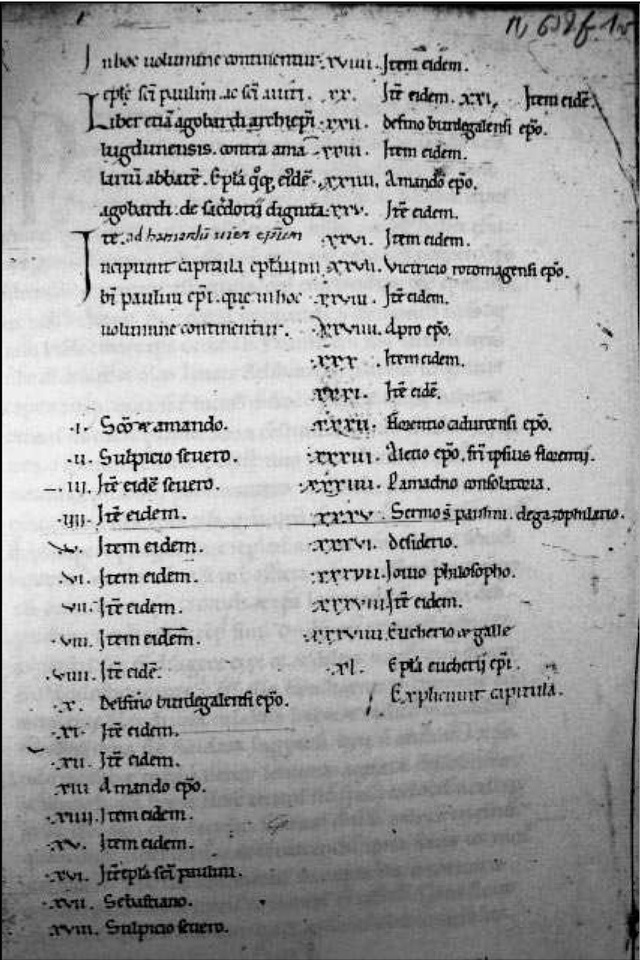 n, 612 f. 1v
In hoc uolumine continentur.
eple sci paulini. ac sci auiti.
Liber etiã agobardi archiepi
lugdunensis. contra ama
lariũ abbatẽ. Epła qq, eidẽ
agobardi. de sacdotij dignita
te. ad
Incipiunt capitula eptarum
bi paulini epi. que in hoc
uolumine continentur.
.i. Sco amando.
.ii. Sulpicio seuero.
.iii. Itẽ eidẽ seuero.
.iiii. Itẽ eidem.
.v. Item eidem.
.vi. Item eidem.
.vii. Itẽ eidem.
.viii. Item eidem.
.viiii. Itẽ eidẽ.
.x. Delfino burdegalensi epo.
.xi. Itẽ eidem.
.xii. Itẽ eidem.
.xiii Amando epo.
.xiiii. Item eidem.
.xv. Item eidem.
.xvi. Itẽ epła sci paulini.
.xvii. Sebastiano.
.xviii. Sulpicio seuero.
.xviiii. Item eidem.
.xx. Itẽ eidem. .xxi. Item eidẽ.
.xxii. Delfino burdegalensi epo.
.xxiii. Item eidem.
.xxiiii. Amando epo.
.xxv. Itẽ eidem.
.xxvi. Item eidem.
.xxvii. Victricio rotomagensi epo.
.xxviii. Itẽ eidem.
.xxviiii. Apro epo.
.xxx. Item eidem.
.xxxi. Itẽ eidẽ.
.xxxii. Florentio cadurcensi epo.
.xxxiii. Aletio epo. fri ipsius florentij.
.xxxiiii. Pamachio consolatoria.
.xxxv. Sermo s̄ paulini. de gazophilatio.
.xxxvi. desiderio.
.xxxvii. Iouio philosopho.
.xxxviii. Itẽ eidem.
.xxxviiii. Eucherio & galle
.xl. Epła eucherij epi.
Expliciunt capitula.